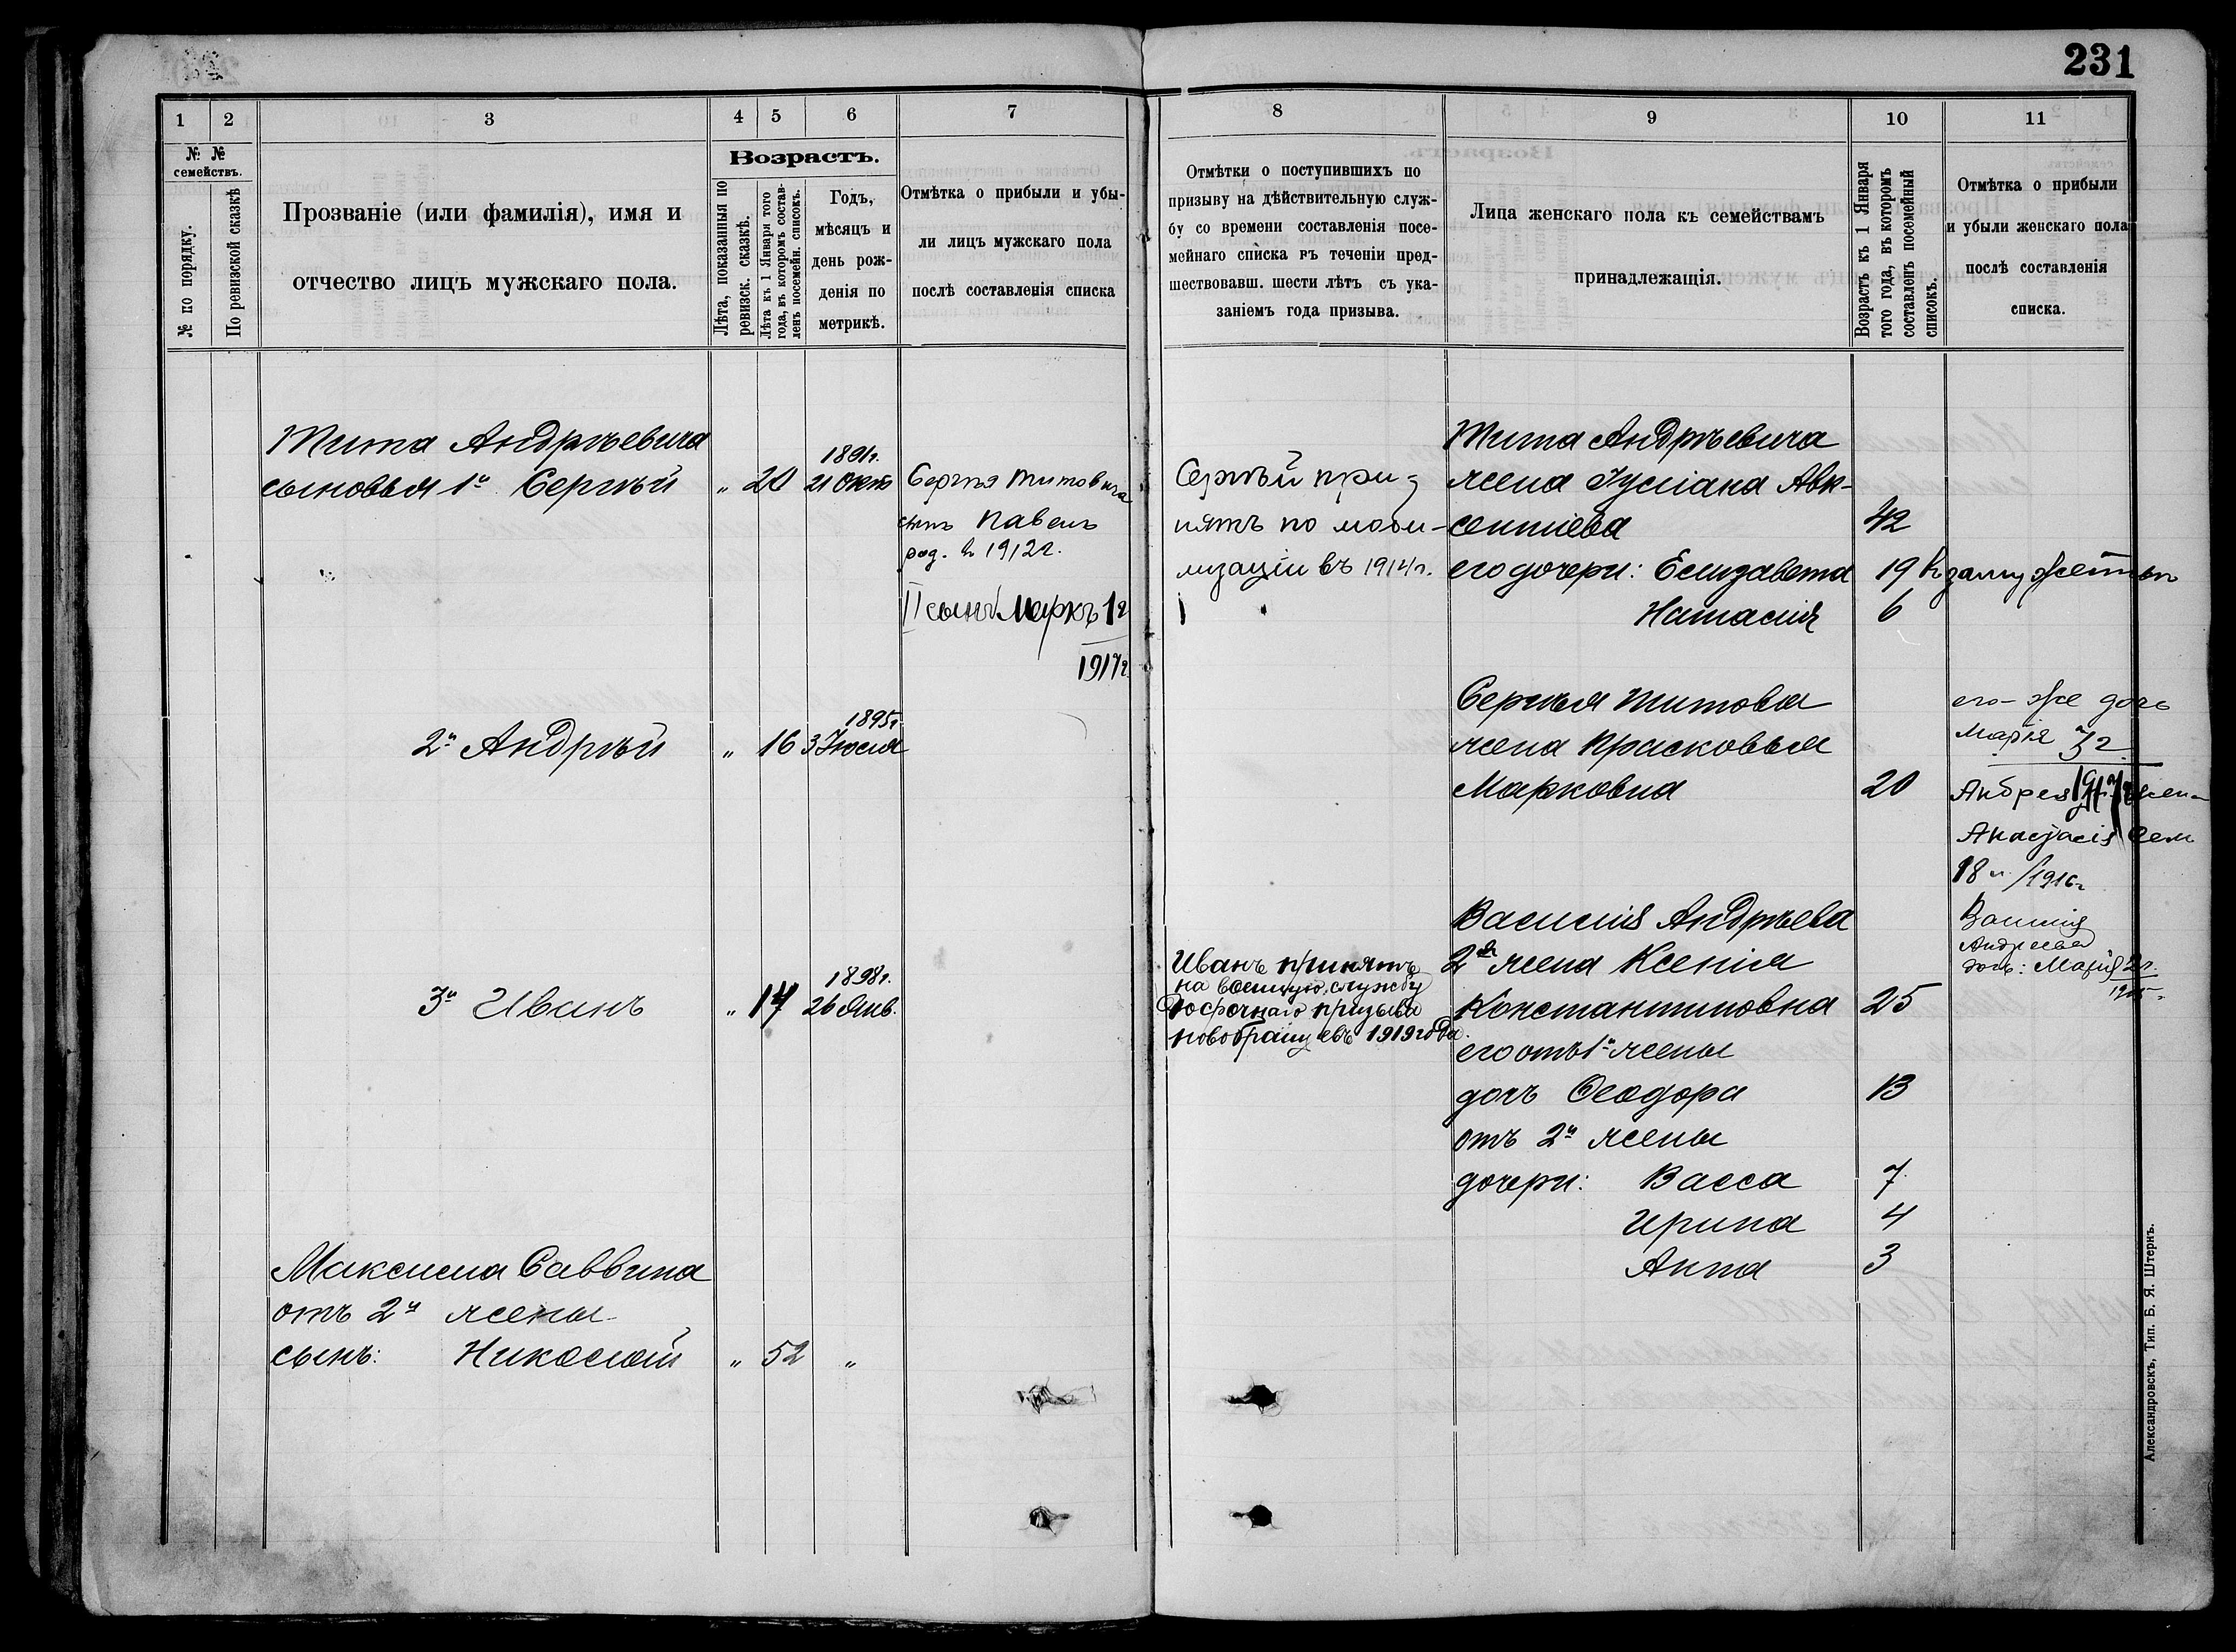 231
1 2 3 4 5 6 7
№ № семействъ.
№ по порядку.
По ревизской сказкѣ
Прозваніе (или фамилія), имя и
отчество лицъ мужскаго пола.
Возрастъ.
Лѣта, показанныя по
ревизск. сказкѣ.
Лѣта къ 1 Января того
года, въ которомъ состав-
ленъ посемейн. списокъ.
Годъ,
мѣсяцъ и
день рож-
денія по
метрикѣ.
Отмѣтка о прибыли и убы-
ли лицъ мужскаго пола
послѣ составленія списка
Тита Андрѣевича
сыновья 1й Сергѣй „ 20 1891г.
21 Окт
Сергѣя Титовича
сынъ Павелъ
род. въ 1912г.
II сынъ Маркъ 1г
1917г.
2й Андрѣй „ 16 1895г.
3 Іюля
3й Иванъ „ 14 1898г.
26 Янв.
Максима Саввина
отъ 2й жены
сынъ: Николай „ 52 „
8 9 10 11
Отмѣтки о поступившихъ по
призыву на дѣйствительную служ-
бу со времени составленія посе-
мейнаго списка въ теченіи пред-
шествовавш. шести лѣтъ съ ука-
заніемъ года призыва.
Лица женскаго пола къ семействамъ
принадлежащія.
Возрастъ къ 1 Января
того года, въ которомъ
составленъ посемейный
списокъ.
Отмѣтка о прибыли
и убыли женскаго пола
послѣ составленія
списка.
Сергѣй при-
нятъ по моби-
лизаціи въ 1914г.
Тита Андрѣевича
жена Іуліана Авк-
сентіева 42
его дочери: Елизавета 19 въ замужествѣ
Наталія 6
Сергѣя Титова
жена Прасковья
Марковна 20
его-же дочь
Марія 3г
1917г
Андрея жена
Анастасія
18 л/1916г
Иванъ принятъ
на военную службу
досрочнаго призыва
новобранцевъ 1919 года.
Василія Андрѣева
2я жена Ксенія
Константиновна 25
его отъ 1й жены
дочь Ѳеодора 13
отъ 2й жены
дочери: Васса 7
Ирина 4
Анна 3
Василія
Андреева
дочь: Марія 2г.
1915г.
Александровскъ, Тип. Б. Я. Штернъ.